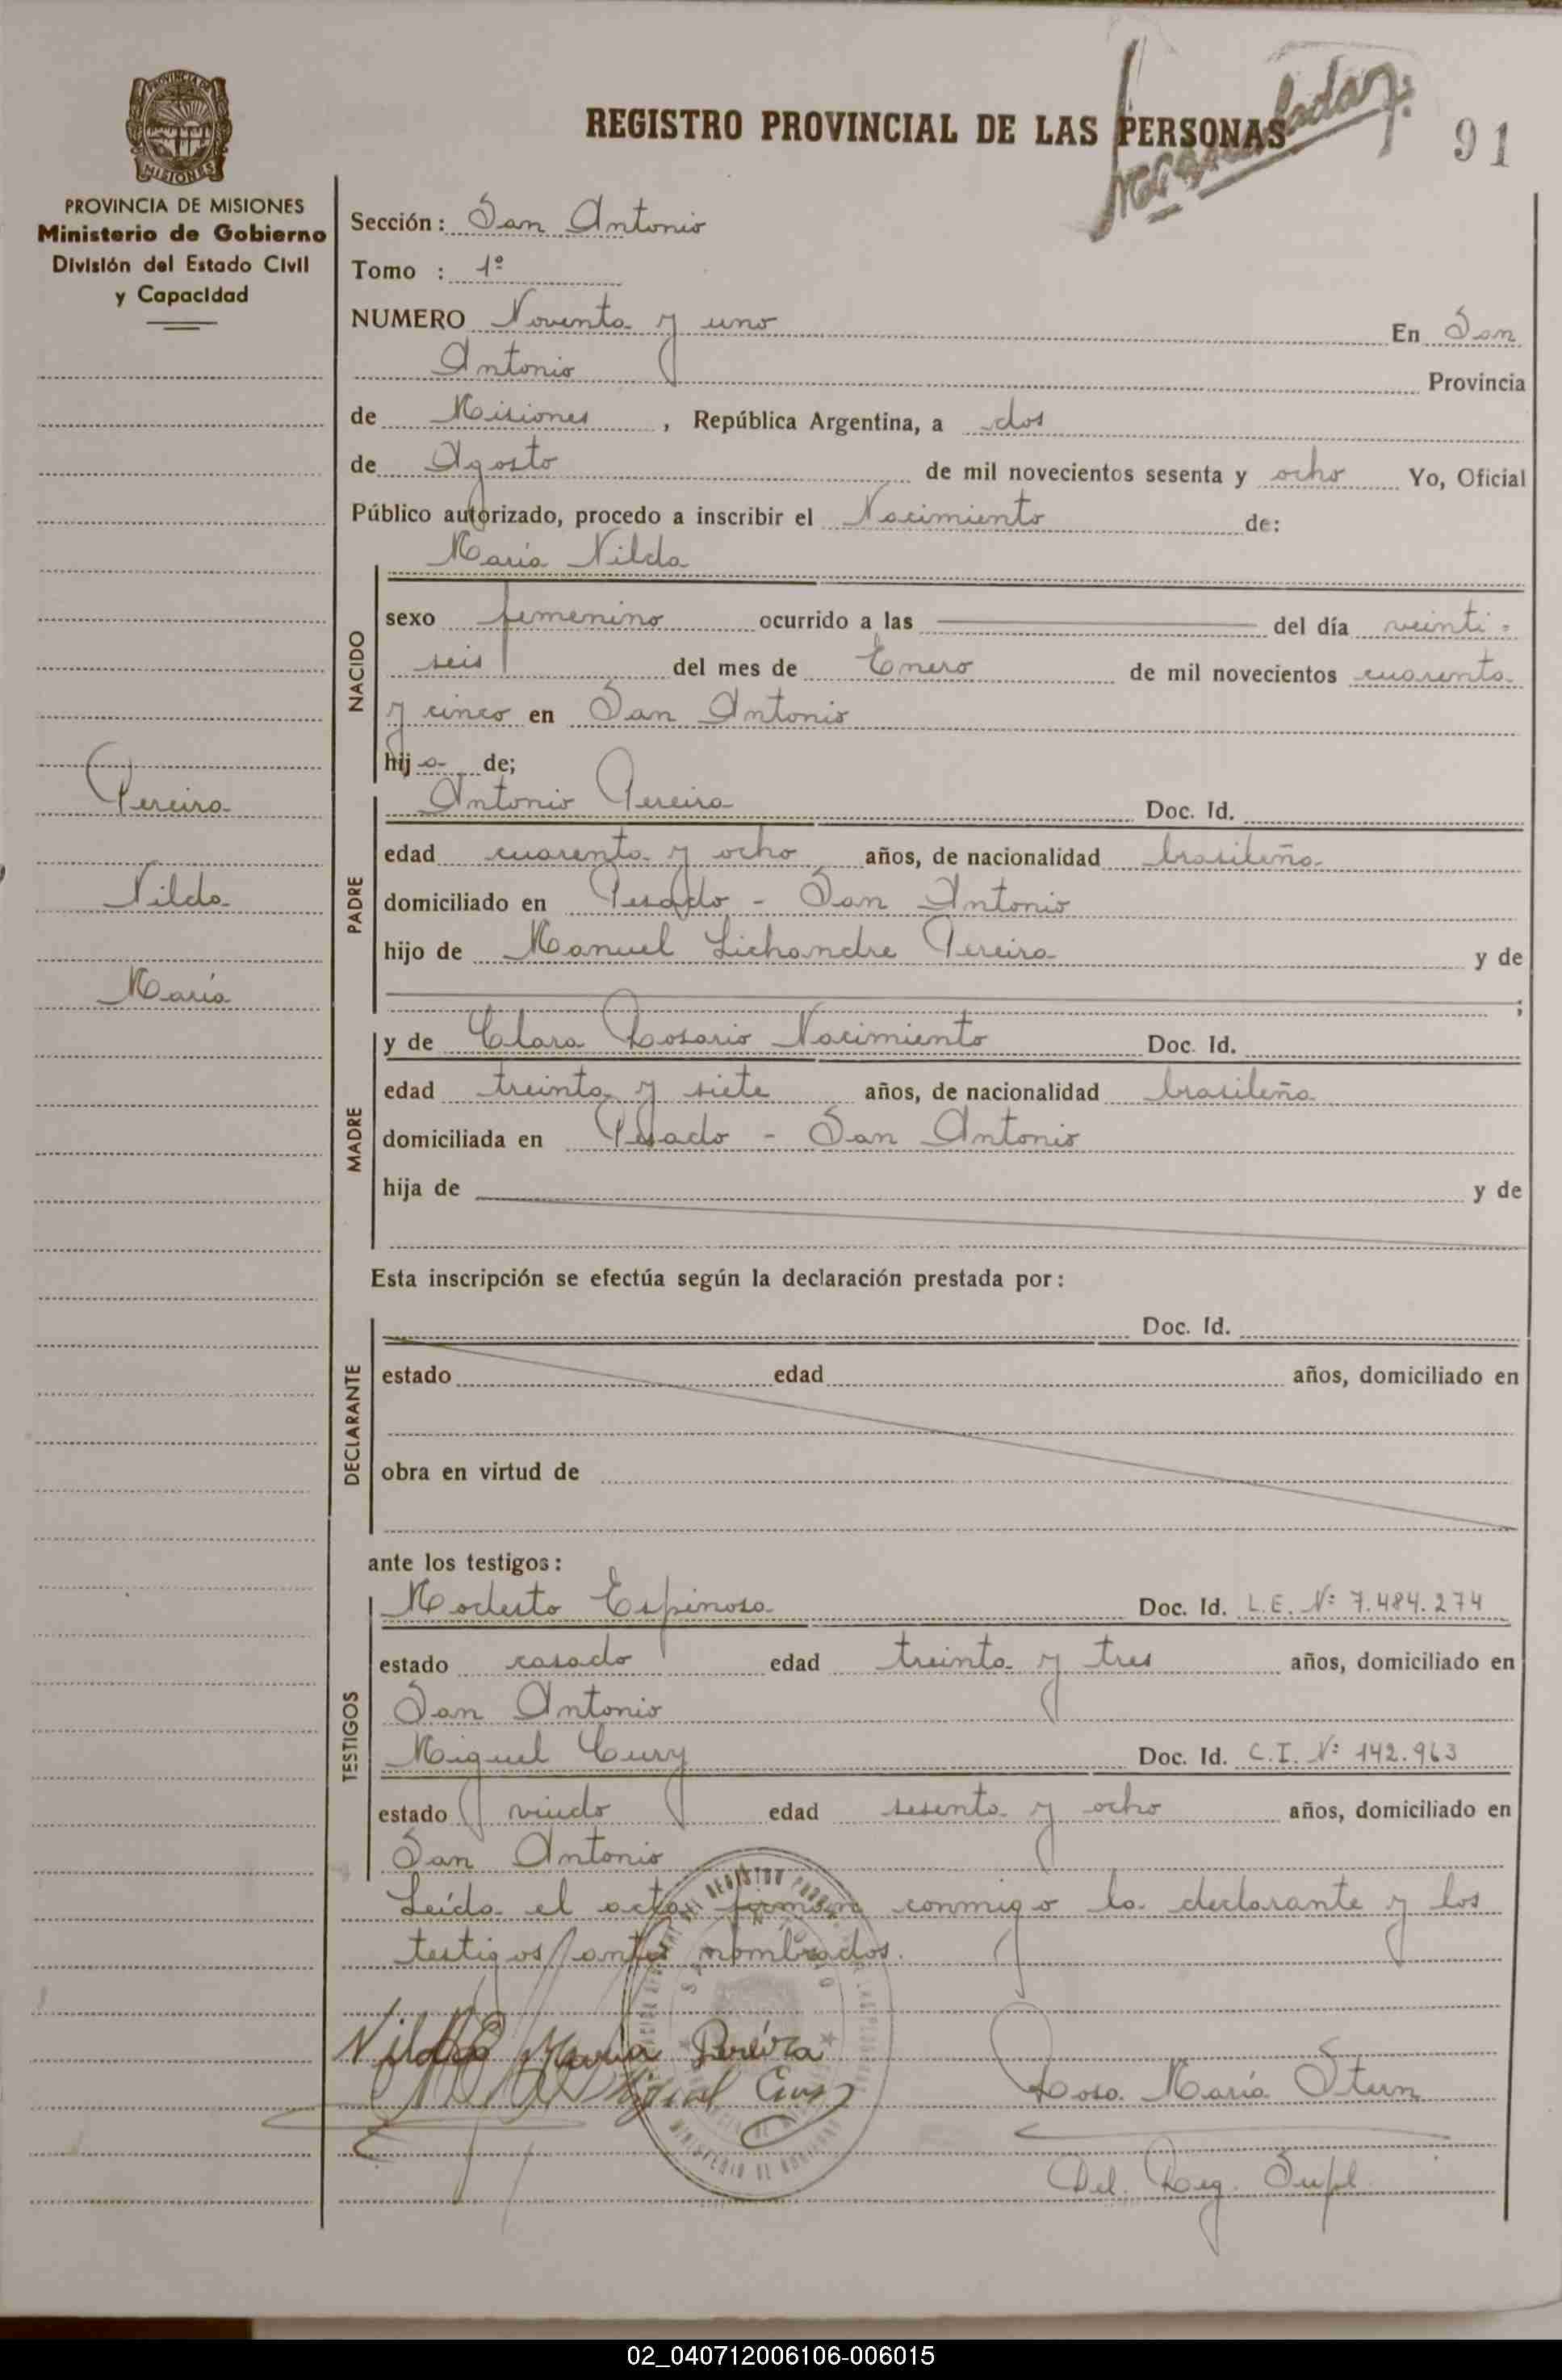 REGISTRO PROVINCIAL DE LAS PERSONAS
91
PROVINCIA DE MISIONES
Ministerio de Gobierno
División del Estado Civil
y Capacidad
Sección: San Antonio
Tomo : 1º
NUMERO Noventa y uno En San
Antonio Provincia
de Misiones, República Argentina, a dos
de Agosto de mil novecientos sesenta y ocho Yo, Oficial
Público autorizado, procedo a inscribir el Nacimiento de:
María Nilda
NACIDO
sexo femenino ocurrido a las del día veinti-
seis del mes de Enero de mil novecientos cuarenta
y cinco en San Antonio
hija de;
Pereira
Nilda
María
PADRE
Antonio Pereira Doc. Id.
edad cuarenta y ocho años, de nacionalidad brasileña
domiciliado en Pesado - San Antonio
hijo de Manuel Lichandre Pereira y de
;
MADRE
y de Clara Rosario Nacimiento Doc. Id.
edad treinta y siete años, de nacionalidad brasileña
domiciliada en Pesado - San Antonio
hija de y de
Esta inscripción se efectúa según la declaración prestada por:
DECLARANTE
Doc. Id.
estado edad años, domiciliado en
obra en virtud de
ante los testigos:
TESTIGOS
Modesto Espinosa Doc. Id. L.E. Nº 7.484.274
estado casado edad treinta y tres años, domiciliado en
San Antonio
Miguel Cury Doc. Id. C.I. Nº 142.963
estado viudo edad sesenta y ocho años, domiciliado en
San Antonio
Leída el acta, firman conmigo la declarante y los
testigos antes nombrados.
Nilda María Pereira
Miguel Cury
Rosa María Stern
Del. Reg. Supl.
02_040712006106-006015